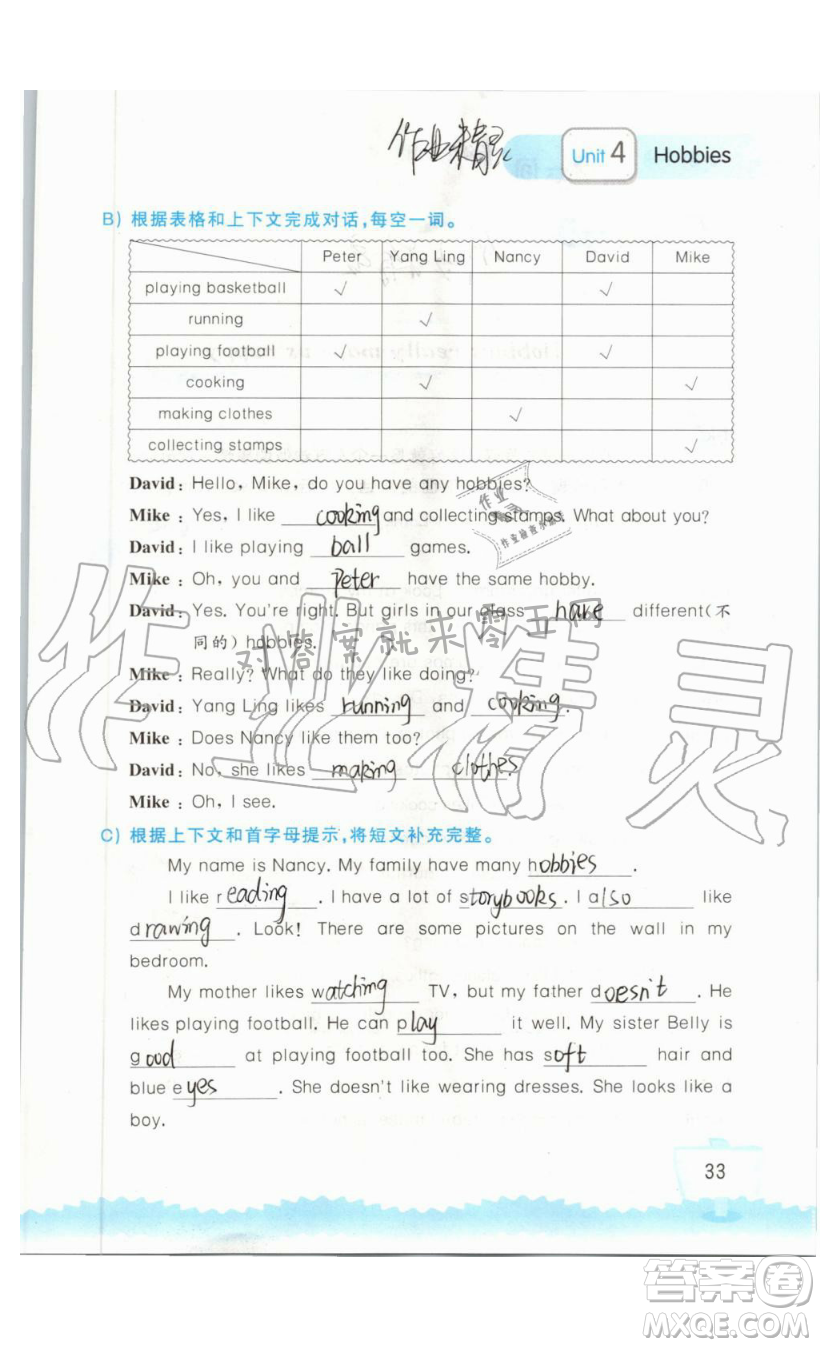 作业精灵
Unit 4 Hobbies
B) 根据表格和上下文完成对话,每空一词。
Peter Yang Ling Nancy David Mike
playing basketball √ √
running √
playing football √ √
cooking √ √
making clothes √
collecting stamps √
David: Hello, Mike, do you have any hobbies?
Mike: Yes, I like cooking and collecting stamps. What about you?
David: I like playing ball games.
Mike: Oh, you and Peter have the same hobby.
David: Yes. You're right. But girls in our class have different(不
同的) hobbies.
Mike: Really? What do they like doing?
David: Yang Ling likes running and cooking.
Mike: Does Nancy like them too?
David: No, she likes making clothes.
Mike: Oh, I see.
C) 根据上下文和首字母提示,将短文补充完整。
My name is Nancy. My family have many hobbies.
I like reading. I have a lot of storybooks. I also like
drawing. Look! There are some pictures on the wall in my
bedroom.
My mother likes watching TV, but my father doesn't. He
likes playing football. He can play it well. My sister Belly is
good at playing football too. She has soft hair and
blue eyes. She doesn't like wearing dresses. She looks like a
boy.
33
作业精灵
对答案就来零五网
作业
作业检查小
答案圈
MXQE.COM